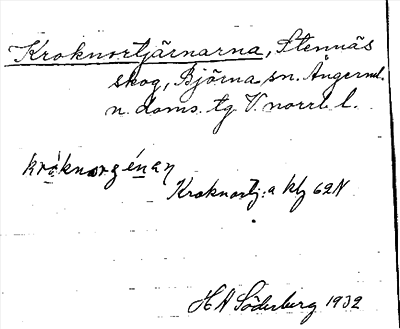 Kroknortjärnarna, Stennäs
skog, Björna sn. Ångerml.
n. doms. tg V. norrl l.
Kroknortj:a kbl 62N
H A Söderberg 1932